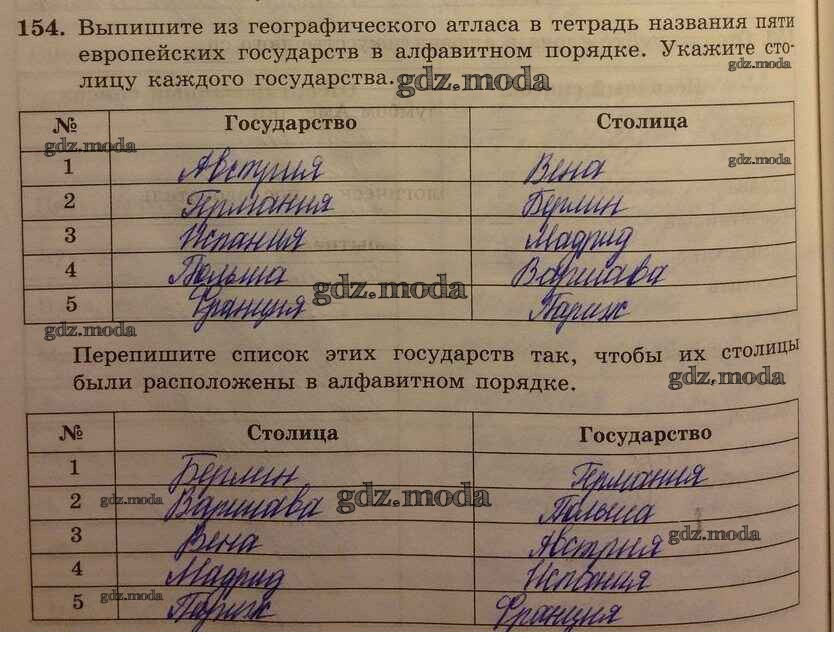 154. Выпишите из географического атласа в тетрадь названия пяти
европейских государств в алфавитном порядке. Укажите сто-
gdz.moda
лицу каждого государства. gdz.moda
№ Государство Столица
gdz.moda gdz.moda
1 Австрия Вена
2 Германия Берлин
3 Испания Мадрид
4 Польша Варшава
gdz.moda
5 Франция Париж
gdz.moda
Перепишите список этих государств так, чтобы их столицы
были расположены в алфавитном порядке.
gdz.moda
№ Столица Государство
1 Берлин Германия
2 Варшава Польша
gdz.moda gdz.moda
3 Вена Австрия
gdz.moda
4 Мадрид Испания
5 Париж Франция
gdz.moda